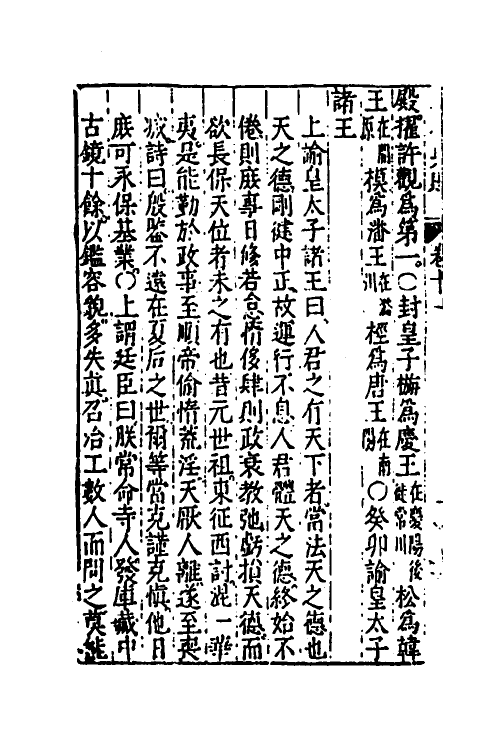 殿擢許觀爲第一○封皇子栴爲慶王在慶陽後徙常川松爲韓
王在開原模爲潘王在潘川桱爲唐王在南陽○癸卯諭皇太子
諸王
上諭皇太子諸王曰人君之有天下者當法天之德也
天之德剛健中正故運行不息人君體天之德終始不
倦則庶專日修若怠惰侈肆則政衰教弛虧損天德而
欲長保天位者未之有也昔元世祖東征西討混一華
夷是能勤於政事至順帝偷惰荒淫天厭人離遂至喪
滅詩曰殷鑒不遠在夏后之世爾等當克謹克愼他日
庶可永保基業○上謂廷臣曰朕常命寺人發庫藏中
古鏡十餘以鑑容貌多失真召冶工數人而問之莫能